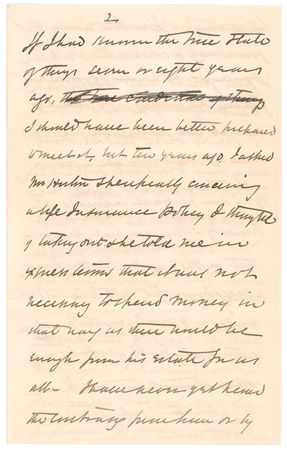 2
If I had known the true state
of things seven or eight years
ago, the true condition of things
I should have been better prepared
to meet it, but two years ago I asked
Mr specifically concerning
a life Insurance policy I thought
of taking out & he told me in
express terms that it was not
necessary to spend money in
that way as there would be
enough from his estate for us
all – I have never yet heard
the contrary from him or by